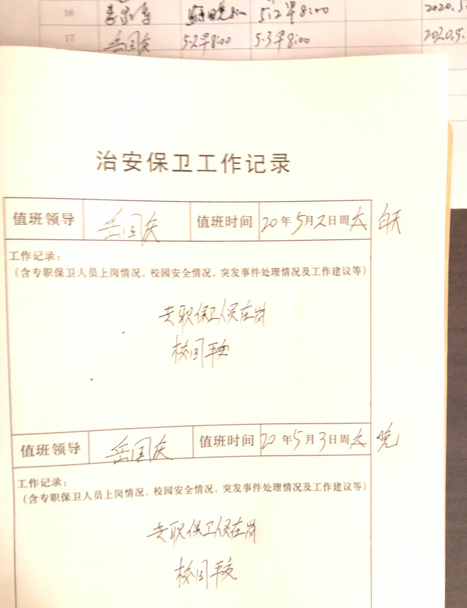 16 5.2早8:00 2020.5.
17 岳国庆 5.2早8:00 5.3早8:00 2020.5.
治安保卫工作记录
值班领导 岳国庆 值班时间 20年5月2日周六 白天
工作记录:
(含专职保卫人员上岗情况,校园安全情况,突发事件处理情况及工作建议等)
专职保卫人员在岗
校园平安
值班领导 岳国庆 值班时间 20年5月3日周六 晚
工作记录:
(含专职保卫人员上岗情况,校园安全情况,突发事件处理情况及工作建议等)
专职保卫人员在岗
校园平安